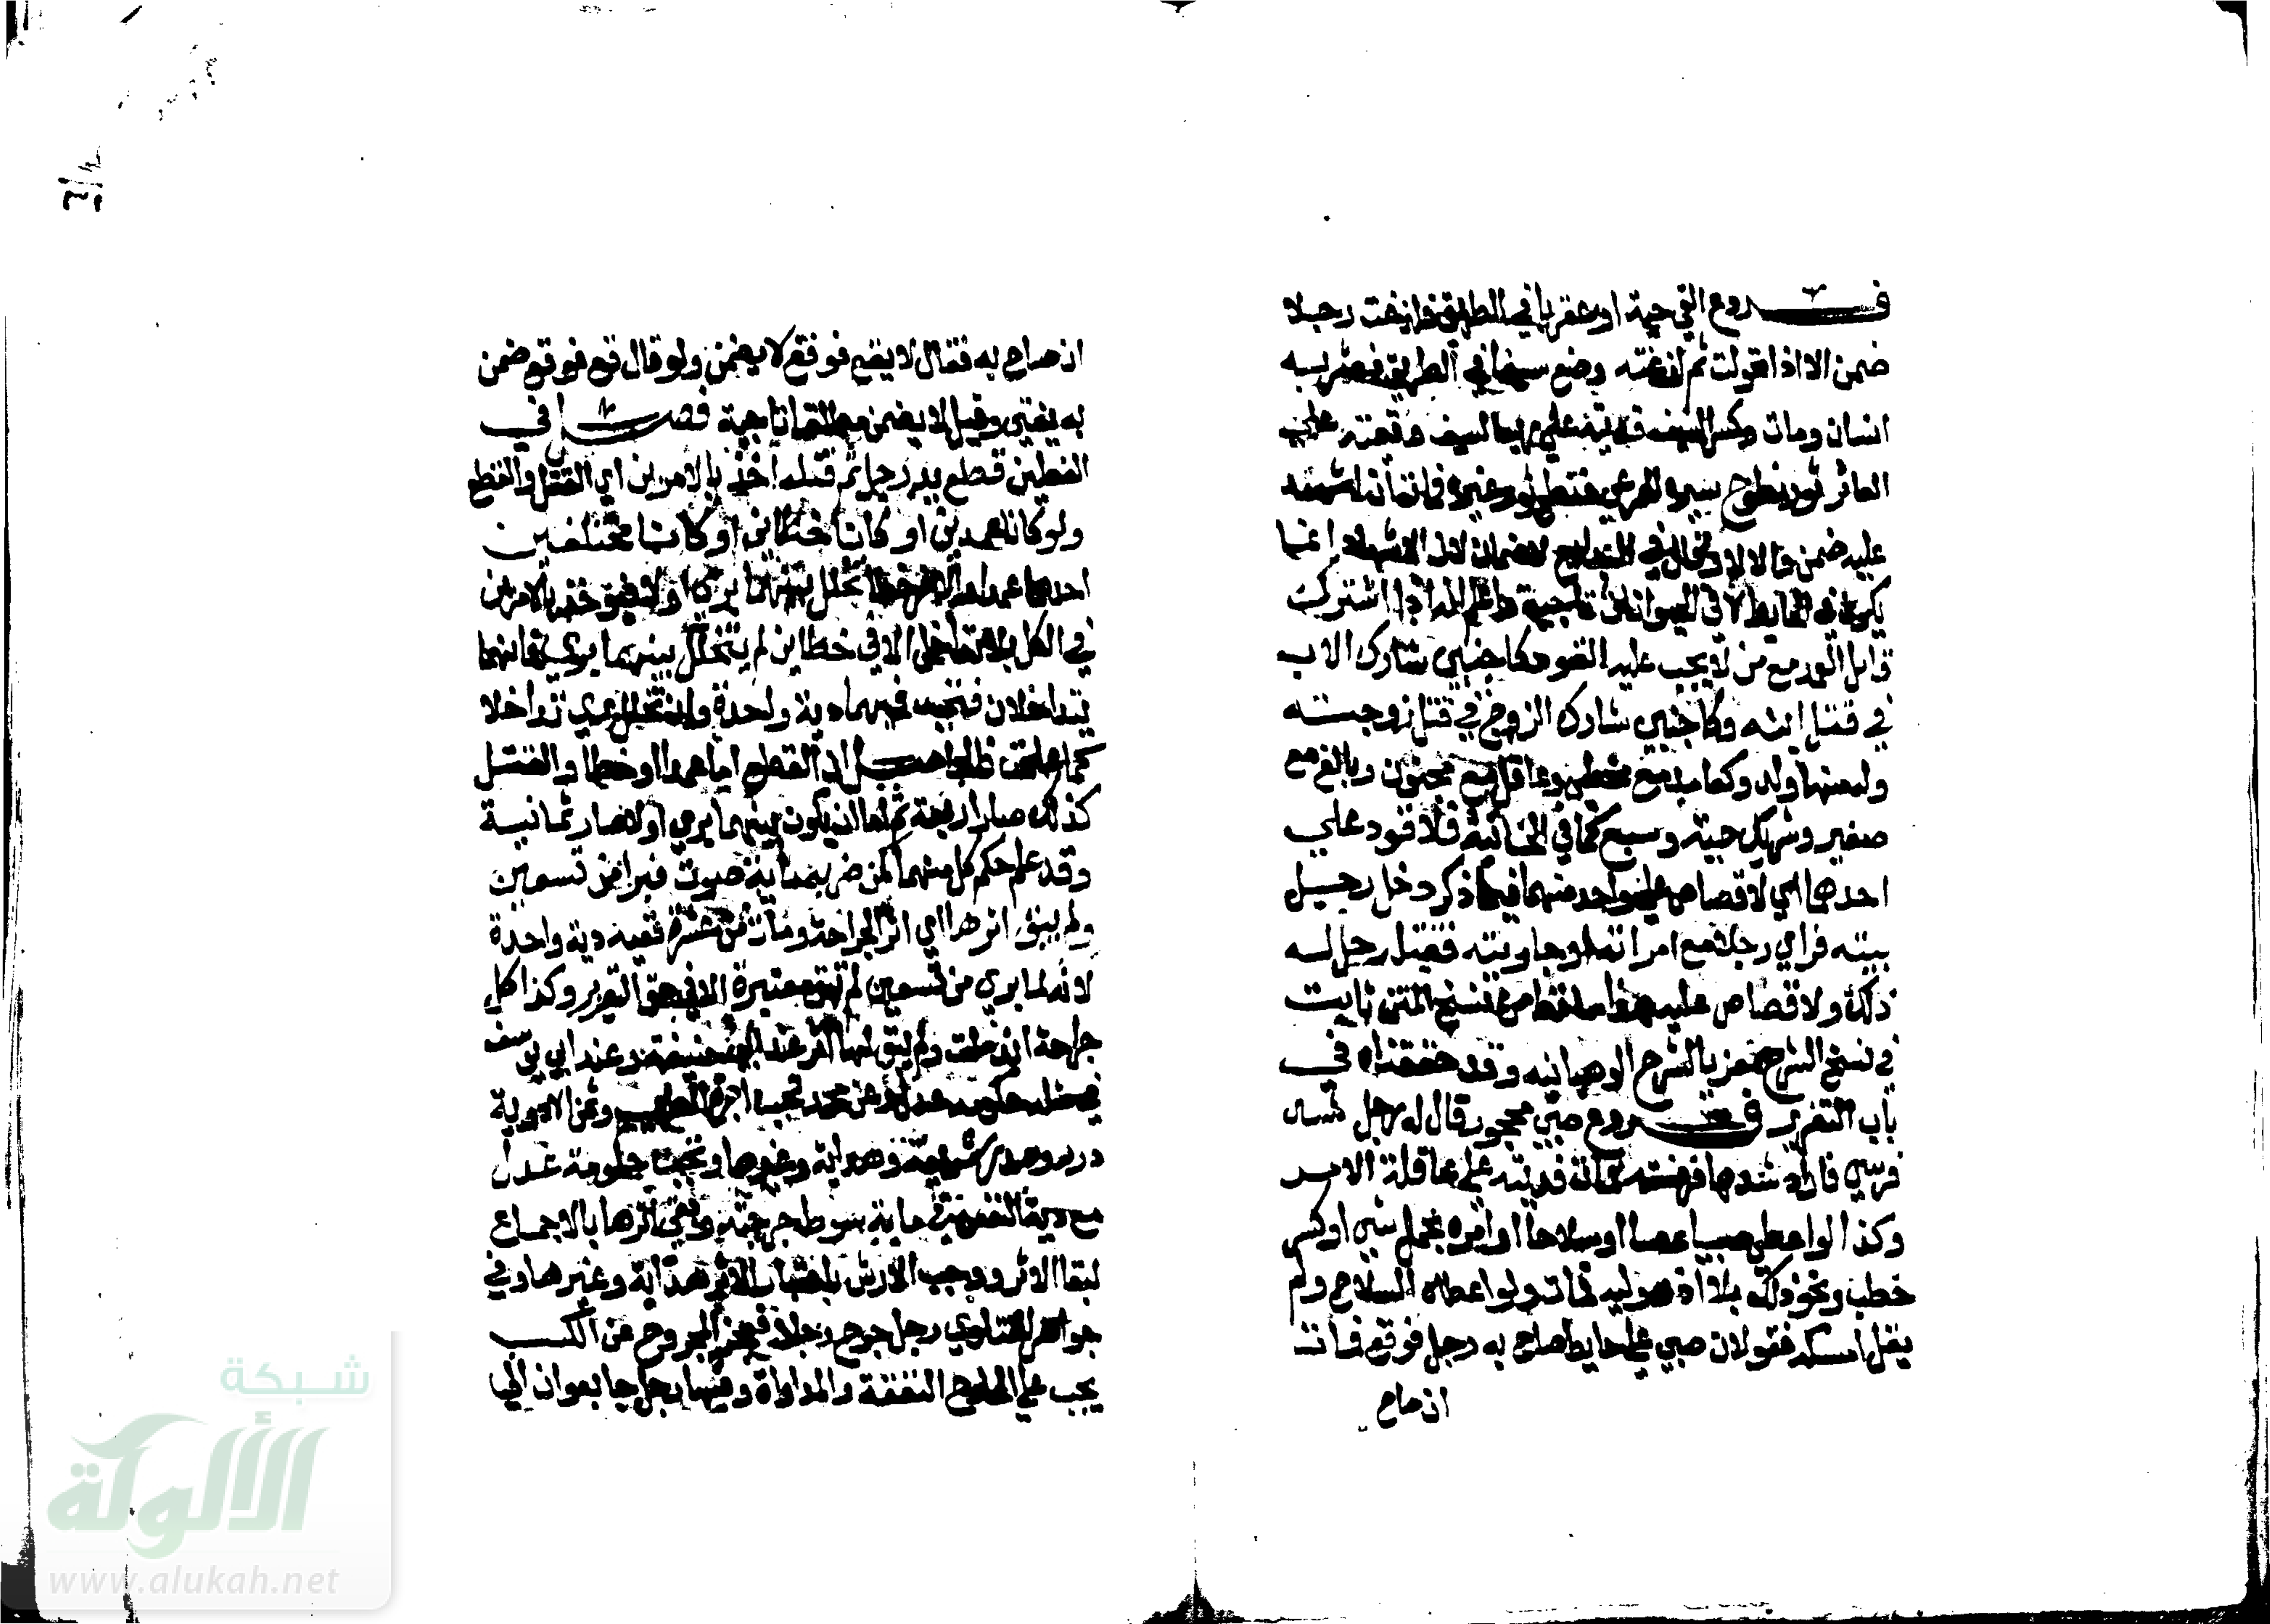 فروع القى حية او عقربا في الطريق فلدغت رجلا
ضمن الا اذا تحولت ثم لدغته وضع سيفا في الطريق فعثر به
انسان ومات وكسر السيف فديته على رب السيف وقيمته على
العاثر ثور نطوح سيره للمرعى فنطح ثور غيره فمات ان اشهد
عليه ضمن والا لا وقال في البدايع لا ضمان لان الاشهاد انما
يكون في الحايط لا في الحيوان تاجية واعلم انه اذا اشترك
قاتل العمد مع من لا يجب عليه القود كاجنبي شارك الاب
في قتل ابنه وكاجنبي شارك الزوج في قتل زوجته
وله منها ولد وكعامد مع مخطي وعاقل مع مجنون وبالغ مع
صغير وشريك حية وسبع كما في الخانية فلا قود على
احدهما اي لا قصاص على واحد منهما فيما ذكر دخل رجل
بيته فراي رجلا مع امراته او جاريته فقتله حل له
ذلك ولا قصاص عليه هذا ساقط من نسخ المتن ثابت
في نسخ الشرح معزيا لشرح الوهبانيه وقد حققناه في
باب التعزير فروع صبي محجور قال له رجل شد
فرسي فاراد شدها فرفسته فمات فديته على عاقلة الامر
وكذا لو اعطى صبيا عصا او سلاحا او امره بحمل شي او كسر
حطب ونحو ذلك بلا اذن وليه فمات ولو اعطاه السلاح ولم
يقل امسكه فقولان صبي على حايط صاح به رجل فوقع فمات
ان صاح
ان صاح به فقال لا يقع فوقع لا يضمن ولو قال قع فوقع ضمن
به يفتى وقيل لا يضمن مطلقا تاجية فصل في
الفعلين قطع يد رجل ثم قتله اخذ بالامرين اي القتل والقطع
ولو كانا عمدين او كانا خطاين او كانا مختلفين
احدهما عمد والاخر خطا تخلل بينهما برء او لا فيؤخذ بالامرين
في الكل بلا تداخل الا في خطاين لم يتخلل بينهما برء فانهما
يتداخلان فتجب فيهما دية واحدة وان تخلل برء لم يتداخلا
كما علمت فالحاصل ان القطع اما عمد او خطا والقتل
كذلك صار اربعة ثم اما ان يكون بينهما برء او لا صار ثمانية
وقد علم حكم كل منهما كمن ضربه ماية صوت فبرا من تسعين
ولم يبق اثرها اي اثر الجراحة ومات من عشرة ففيه دية واحدة
لانه لما بري من تسعين لم تبق معتبرة الا في حق التعزير وكذا كل
جراحة اندملت ولم يبق لها اثر عند ابي حنيفة وعند ابي يوسف
في مثله حكومة عدل وعن محمد تجب اجرة الطبيب وثمن الادوية
درر وصدر الشريعة وهداية وغيرها وتجب حكومة عدل
مع دية النفس في ماية سوط جرحته وبقي اثرها بالاجماع
لبقا الاثر ووجب الارش باعتبار الاثر هداية وغيرها وفي
جواهر الفتاوي رجل جرح رجلا فعجز المجروح عن الكسب
يجب على الجارح النفقة والمداواة وفيها رجل جا بعوان الى
شبكة
الألوكة
www.alukah.net